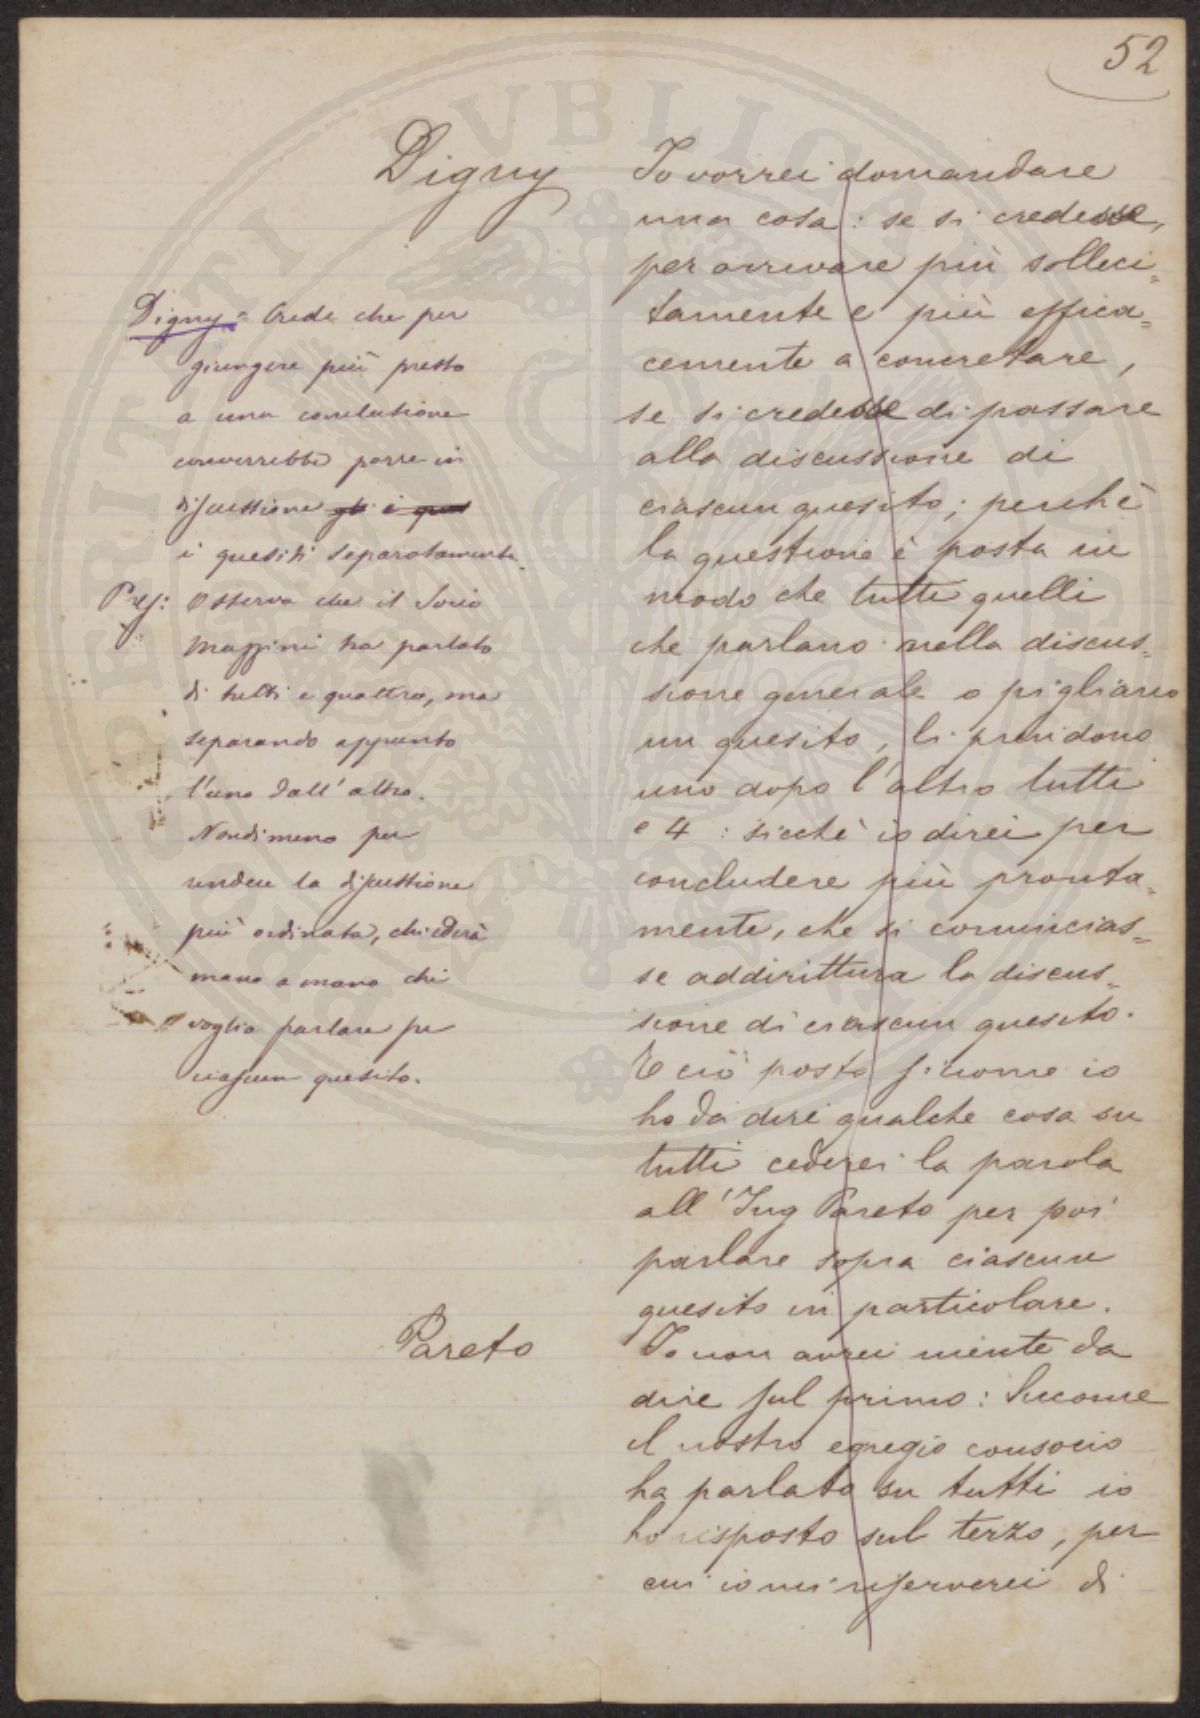 52
Digny
Io vorrei domandare
una cosa: se si credesse,
per arrivare più solleci=
tamente e più effica=
cemente a concretare,
se si credesse di passare
alla discussione di
ciascun quesito; perchè
la questione è posta in
modo che tutti quelli
che parlano nella discus=
sione generale o pigliano
un quesito, li prendono
uno dopo l'altro tutti
e 4: sicchè io direi per
concludere più pronta=
mente, che si comincias=
se addirittura la discus=
sione di ciascun quesito.
E ciò posto siccome io
ho da dire qualche cosa su
tutti cederei la parola
all'Ing Pareto per poi
parlare sopra ciascun
quesito in particolare.
Pareto
Io non avrei niente da
dire sul primo: Siccome
il nostro egregio consocio
ha parlato su tutti io
ho risposto sul terzo, per
cui io mi riserverei di
Digny = Crede che per
giungere più presto
a una conclusione
converrebbe porre in
discussione gli i ques
i quesiti separatamente.
Pres: Osserva che il Socio
Mazzini ha parlato
di tutti e quattro, ma
separando appunto
l'uno dall'altro.
Nondimeno per
rendere la discussione
più ordinata, chiederà
mano a mano chi
voglia parlare per
ciascun quesito.